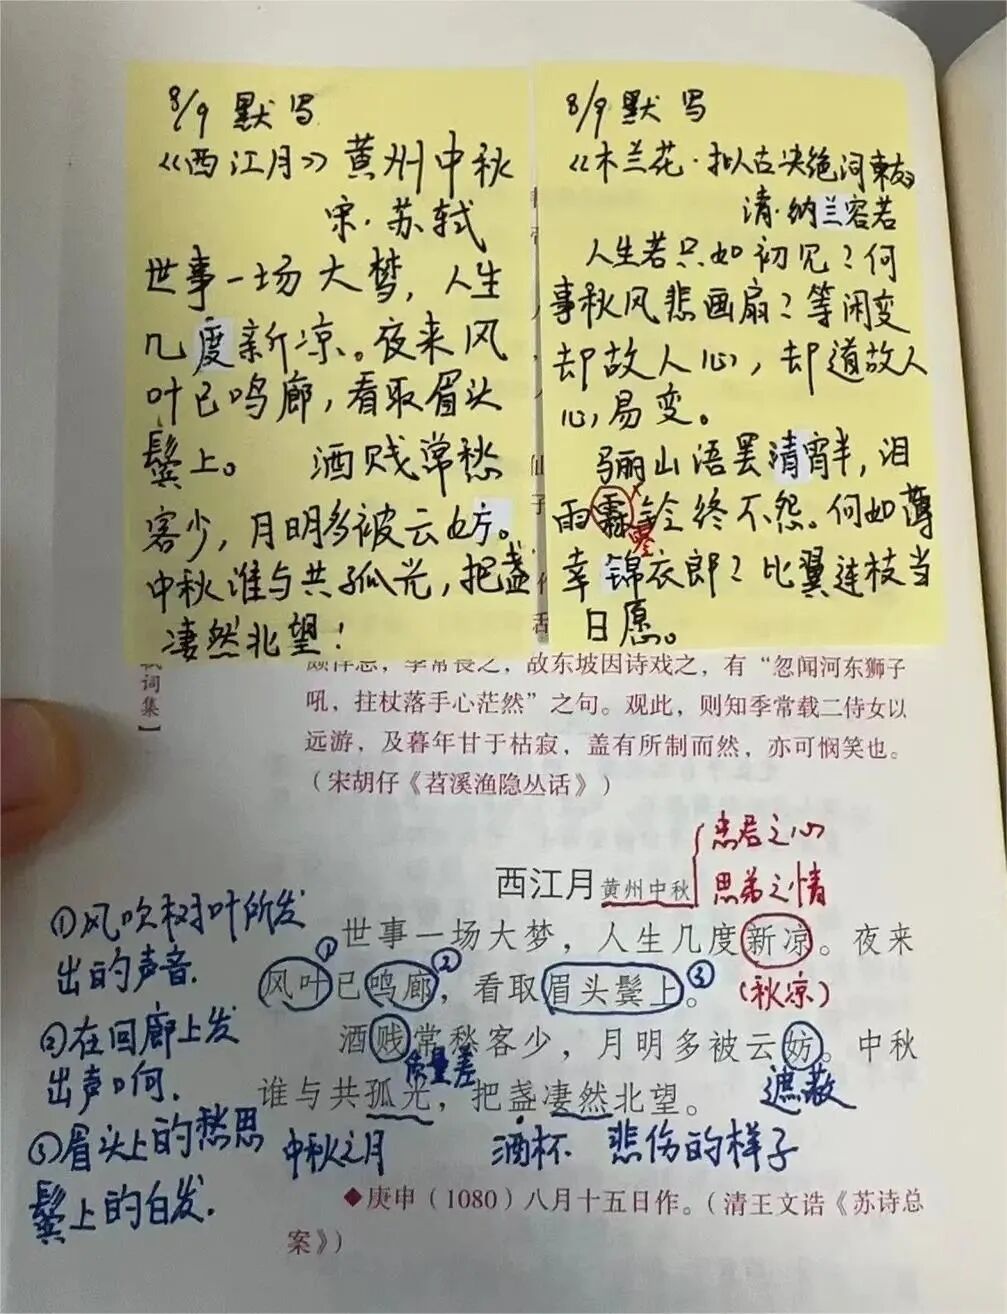 8/9 默写
《西江月》黄州中秋
宋·苏轼
世事一场大梦，人生
几度新凉。夜来风
叶已鸣廊，看取眉头
鬓上。 酒贱常愁
客少，月明多被云妨。
中秋谁与共孤光，把盏
凄然北望！
8/9 默写
《木兰花·拟古决绝词柬友》
清·纳兰容若
人生若只如初见？何
事秋风悲画扇？等闲变
却故人心，却道故人
心易变。
骊山语罢清宵半，泪
雨霖铃终不怨。何如薄
幸锦衣郎？比翼连枝当
日愿。
词集】
颇悍忌，季常畏之，故东坡因诗戏之，有“忽闻河东狮子
吼，拄杖落手心茫然”之句。观此，则知季常载二侍女以
远游，及暮年甘于枯寂，盖有所制而然，亦可悯笑也。
（宋胡仔《苕溪渔隐丛话》）
忠君之心
西江月 黄州中秋
思弟之情
世事一场大梦，人生几度新凉。夜来
风叶①已鸣廊②，看取眉头鬓上③。
（秋凉）
酒贱常愁客少，月明多被云妨。中秋
质量差
遮蔽
谁与共孤光，把盏凄然北望。
中秋之月 酒杯 悲伤的样子
①风吹树叶所发
出的声音.
②在回廊上发
出声响.
③眉头上的愁思
鬓上的白发.
◆庚申（1080）八月十五日作。（清王文诰《苏诗总
案》）